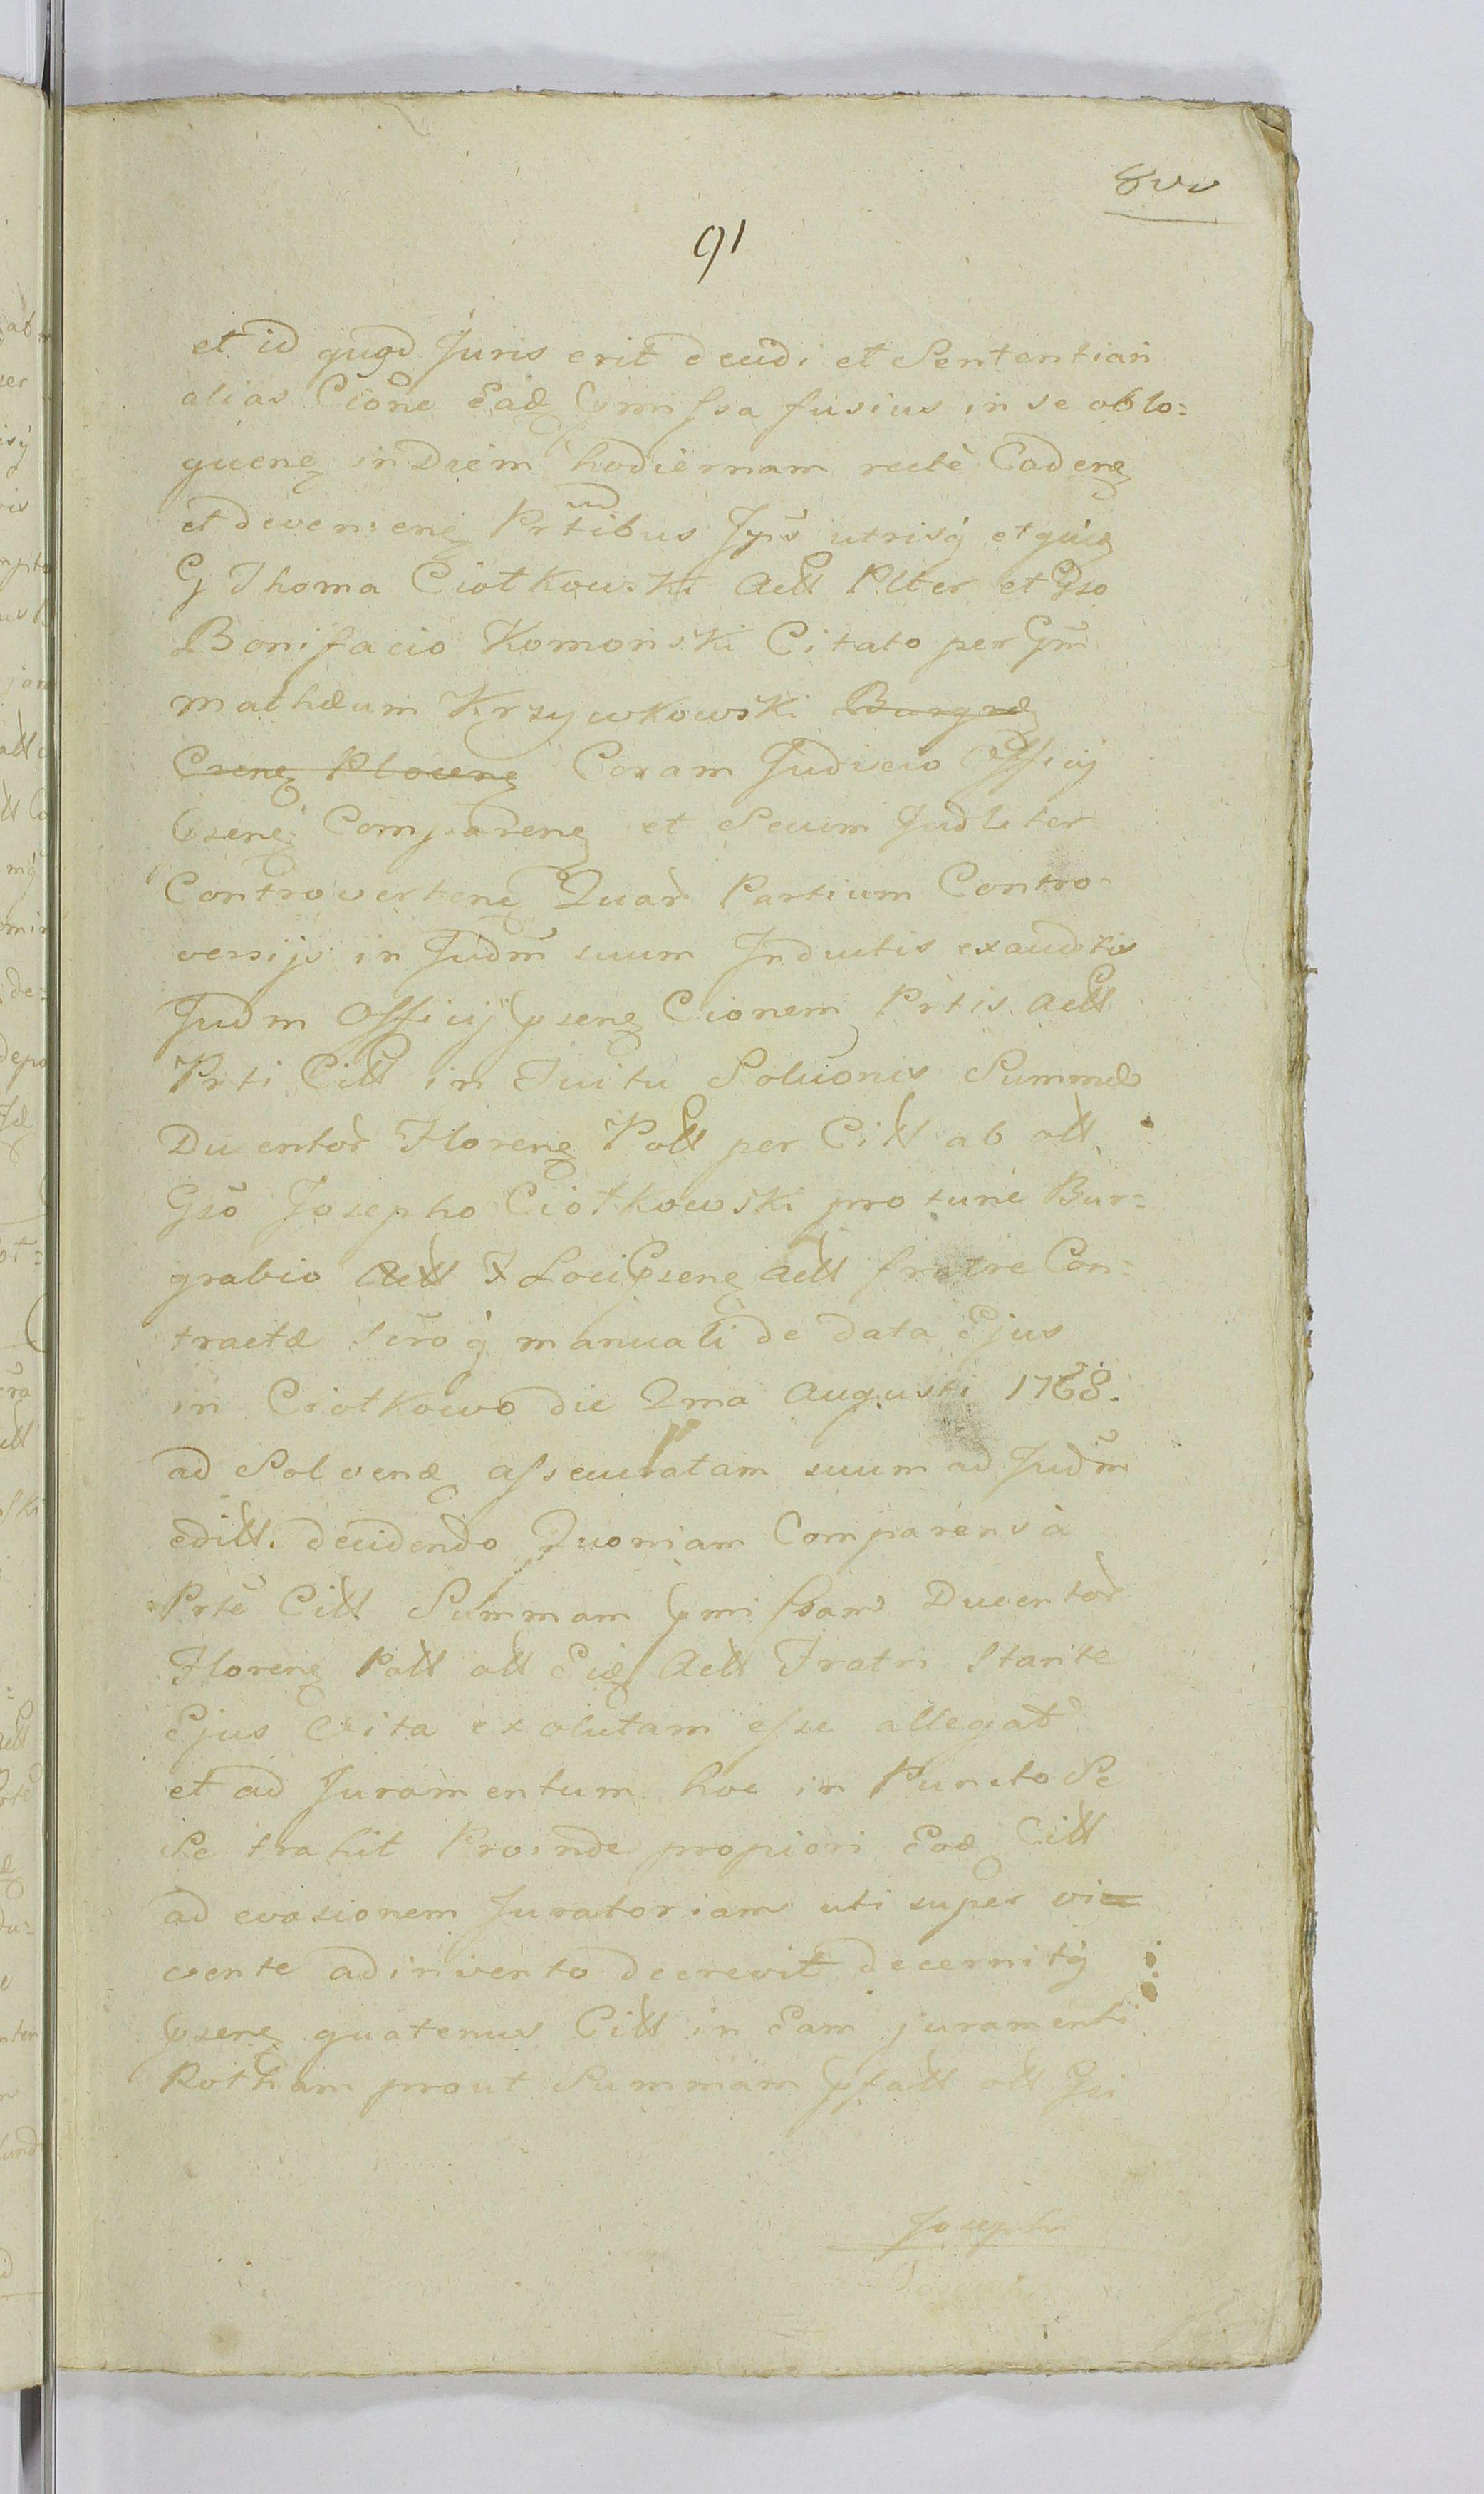 91
et id quod Juris erit decidi et Sententiari
alias Cione Ead pmissa fusius in se oblo=
quen in Diem hodiernam recte Caden
et devenien Prtibus Jps utrisq et quid
G Thoma Ciołkowski Actt Plter et Gso
Bonifacio Komoński Citato per Gm
Mathæum Krzywkowski Burgræ
Csen Plocen Coram Judicio Officij
psen Comparen et Secum Judlter
Controverten Quar Partium Contro-
versijs in Judm suum Inductis exauditis
Judm Officij psen Cionem Prtis Actt
Prti Citt in Tuitu Soluonis Summæ
Ducentor Floren Pott per Citt ab ott
Gso Josepho Ciołkowski pro tunc Bur=
grabio Actt Loci psen Actt fratre Con=
tractæ Scroq manuali de data Ejus
in Ciołkowo die 2ma Augusti 1768.
ad Solven assecuratam suum ad Judm
editt. decidendo Quoniam Comparens à
Prte Citt Summam pmissam Ducentor
Floren Pott ott Ejus Actt Fratri Stante
Ejus Vita exolutam esse allegat
et ad Juramentum hoc in Puncto Se
Se trahit Proinde propiori Eod Citt
ad evasionem Juratoriam uti super vi=
vente adinvento decrevit decernitq
psen quatenus Citt in Eam juramenti
Rotham prout Summam pfatt ott Gsi
Josephi